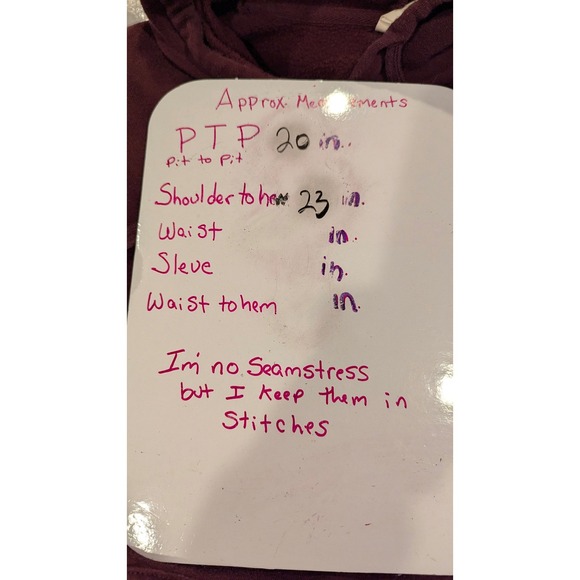 Approx. Measurements
PTP 20 in.
Pit to Pit
Shoulder to hem 23 in.
Waist in.
Sleve in.
Waist to hem in.
I'm no Seamstress
but I keep them in
Stitches